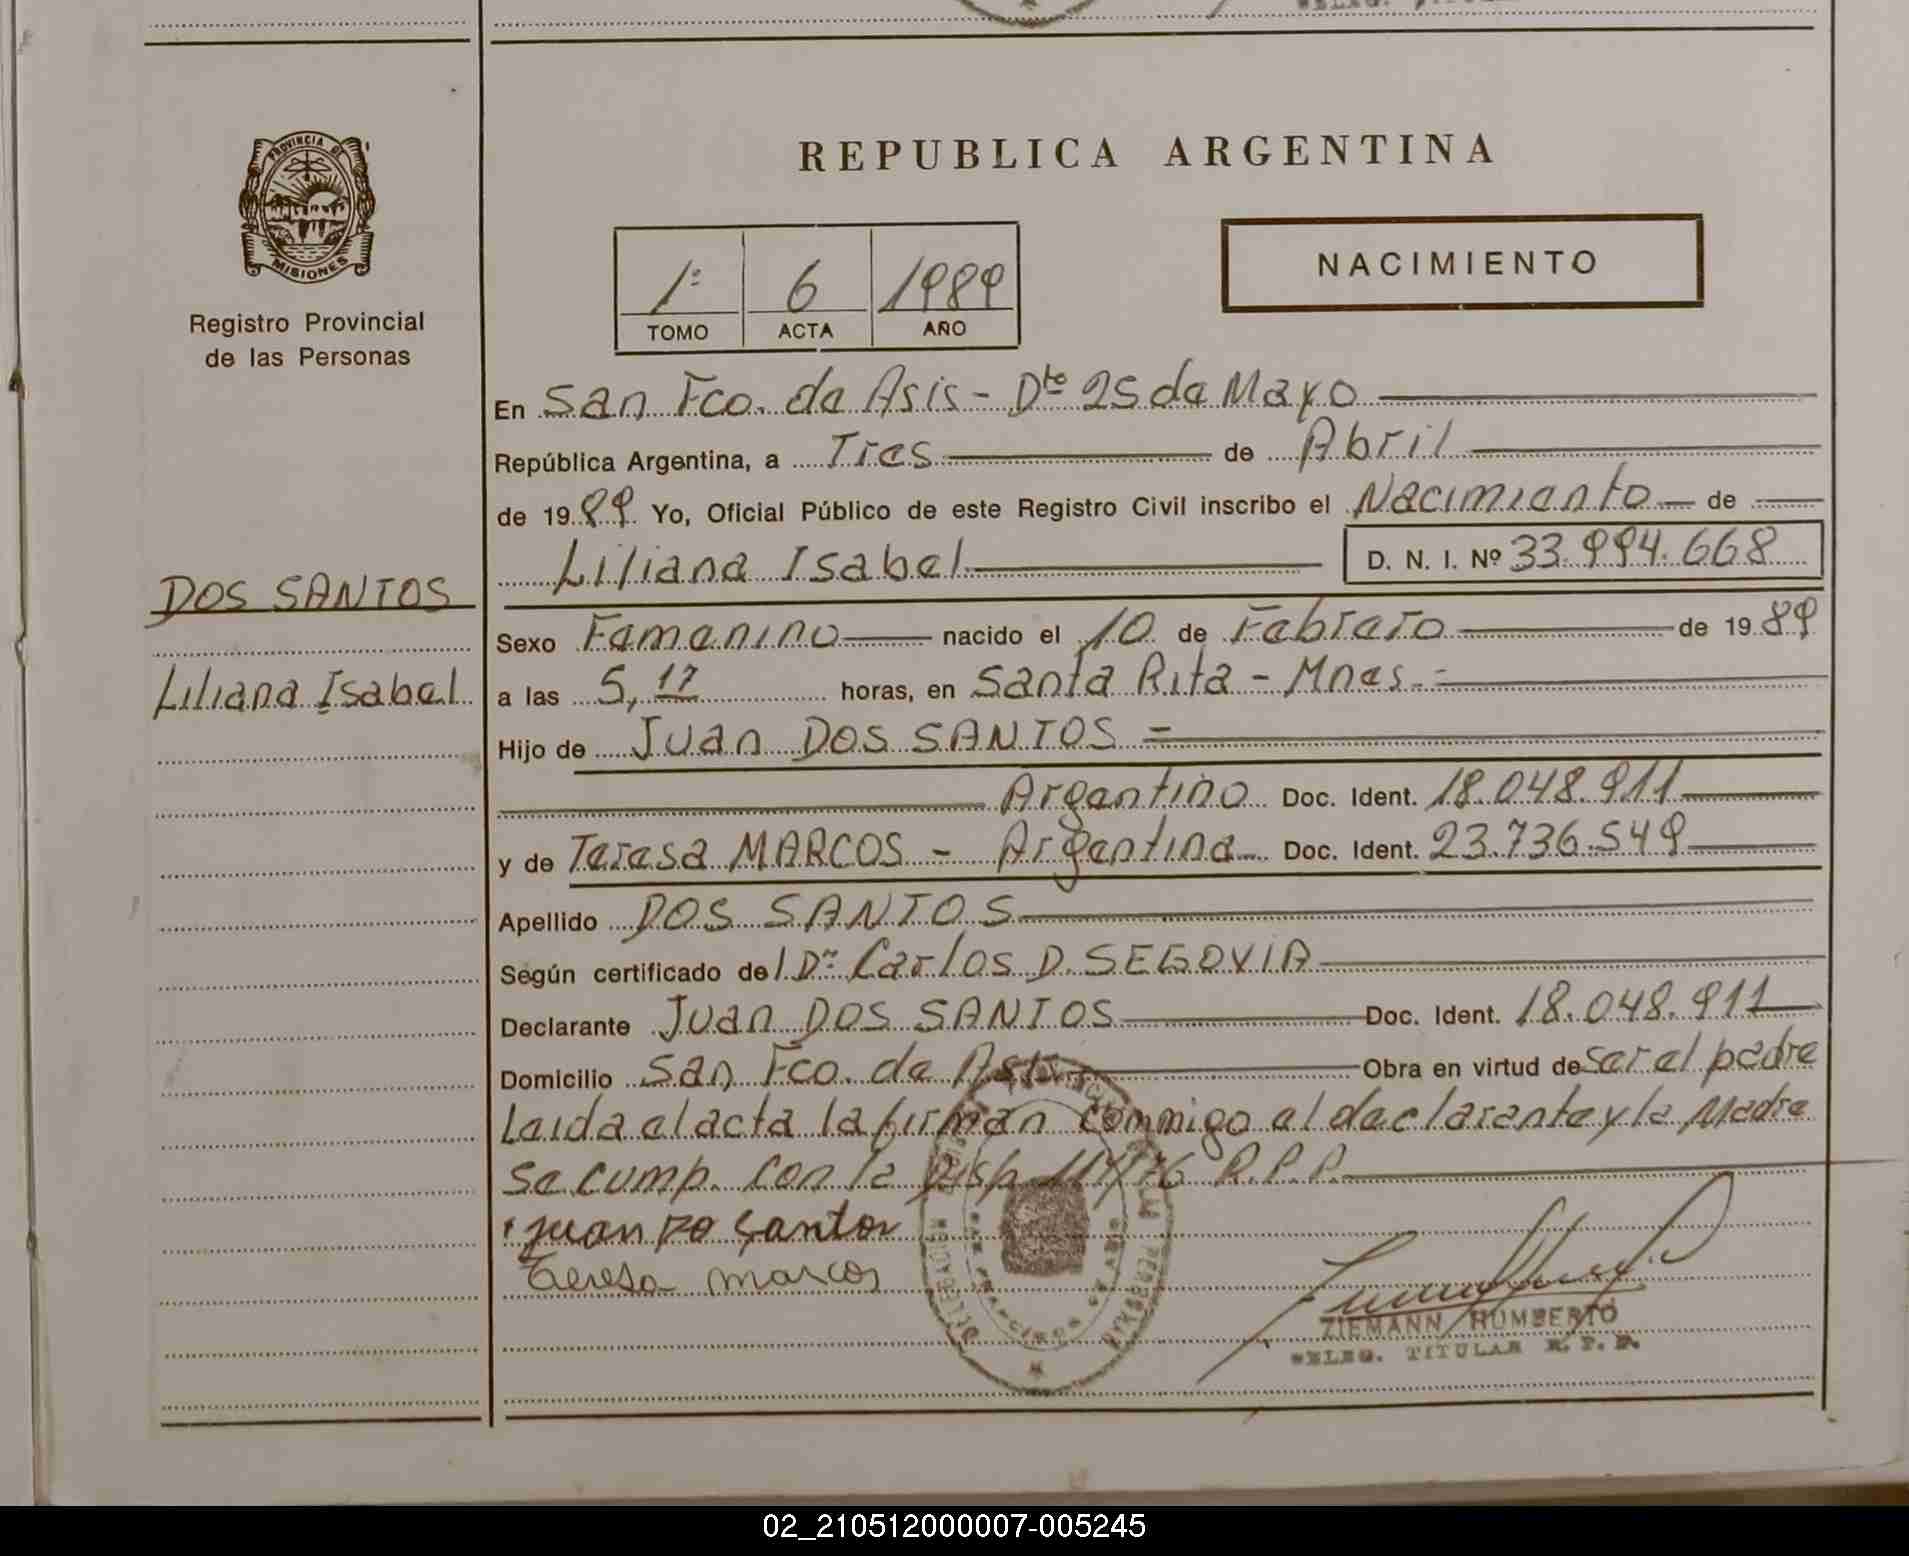 PROVINCIA DE
MISIONES
Registro Provincial
de las Personas
DOS SANTOS
Liliana Isabel
REPUBLICA ARGENTINA
NACIMIENTO
1º 6 1989
TOMO ACTA AÑO
En San Fco. de Asis - Dto 25 de Mayo
República Argentina, a Tres de Abril
de 1989 Yo, Oficial Público de este Registro Civil inscribo el Nacimiento de
Liliana Isabel D. N. I. Nº 33.994.668
Sexo Femenino nacido el 10 de Febrero de 1989
a las 5,17 horas, en Santa Rita - Mnes.
Hijo de Juan DOS SANTOS =
Argentino Doc. Ident. 18.048.911
y de Teresa MARCOS - Argentina Doc. Ident. 23.736.549
Apellido DOS SANTOS
Según certificado del Dr Carlos D. SEGOVIA
Declarante Juan DOS SANTOS Doc. Ident. 18.048.911
Domicilio San Fco. de Asis Obra en virtud de ser el padre
Leida el acta la firman conmigo el declarante y la Madre
se cump. con la Disp. 11/76 R.P.P.
Juan Do Santos
Teresa marcos
ZIEMANN HUMBERTO
DELEG. TITULAR R. P. P.
02_210512000007-005245